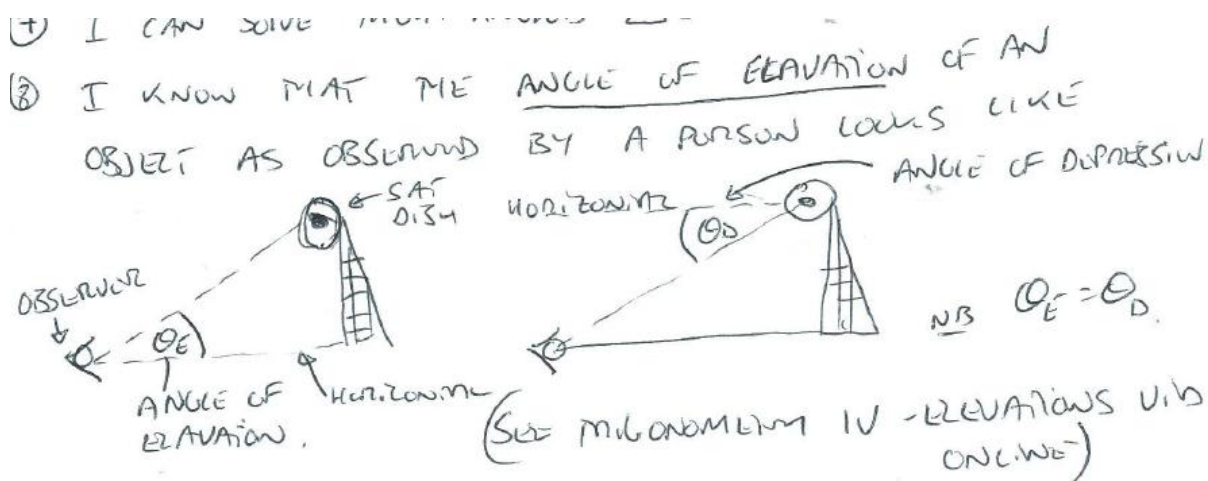 ⑦ I CAN SOLVE
⑧ I KNOW THAT THE ANGLE OF ELAVATION OF AN
OBJECT AS OBSERVED BY A PERSON LOOKS LIKE
ANGLE OF DEPRESSION
SAT
DISH
HORIZONTAL
θD
OBSERVER
θE
NB θE = θD.
ANGLE OF
ELAVATION.
HORIZONTAL
(SEE TRIGONOMETRY IV - ELEVATIONS VID
ONLINE)